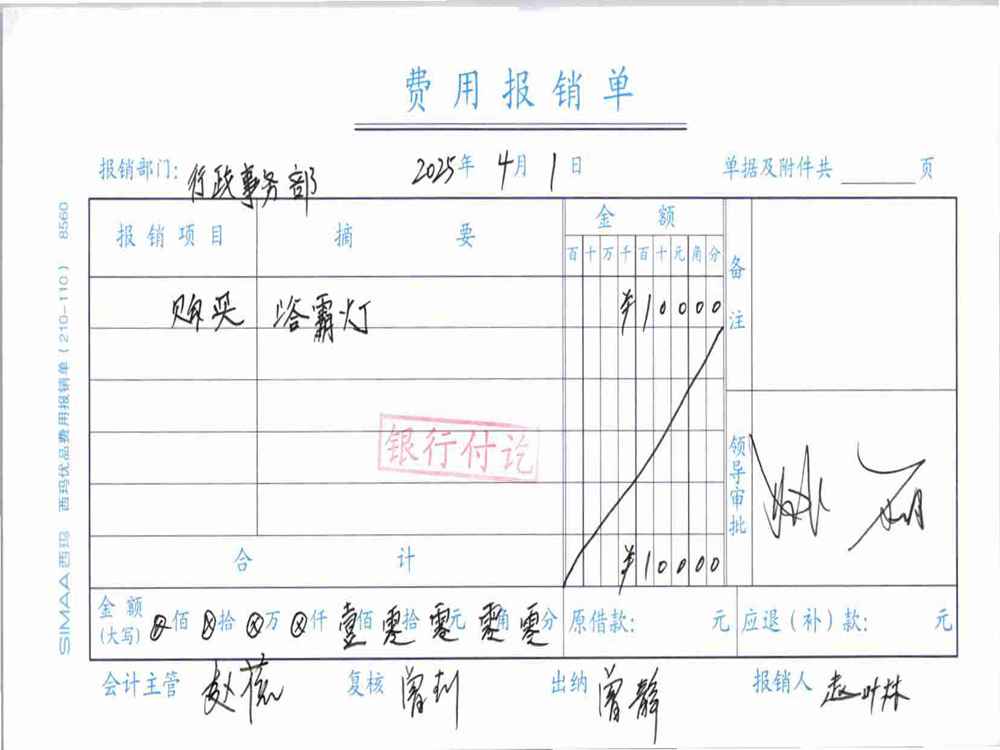 费用报销单
报销部门：行政事务部 2025年 4月 1日 单据及附件共 页
报销项目 摘要 金额 备注
百十万千百十元角分
购买 浴霸灯 ¥10000
银行付讫
领导审批
合计 ¥10000
金额(大写) ⊗佰 ⊗拾 ⊗万 ⊗仟 壹佰 零拾 零元 零角 零分 原借款： 元 应退（补）款： 元
会计主管 赵 复核 曾利 出纳 曾静 报销人 赵叶林
SIMAA西玛 西玛优品费用报销单（210-110） 8560